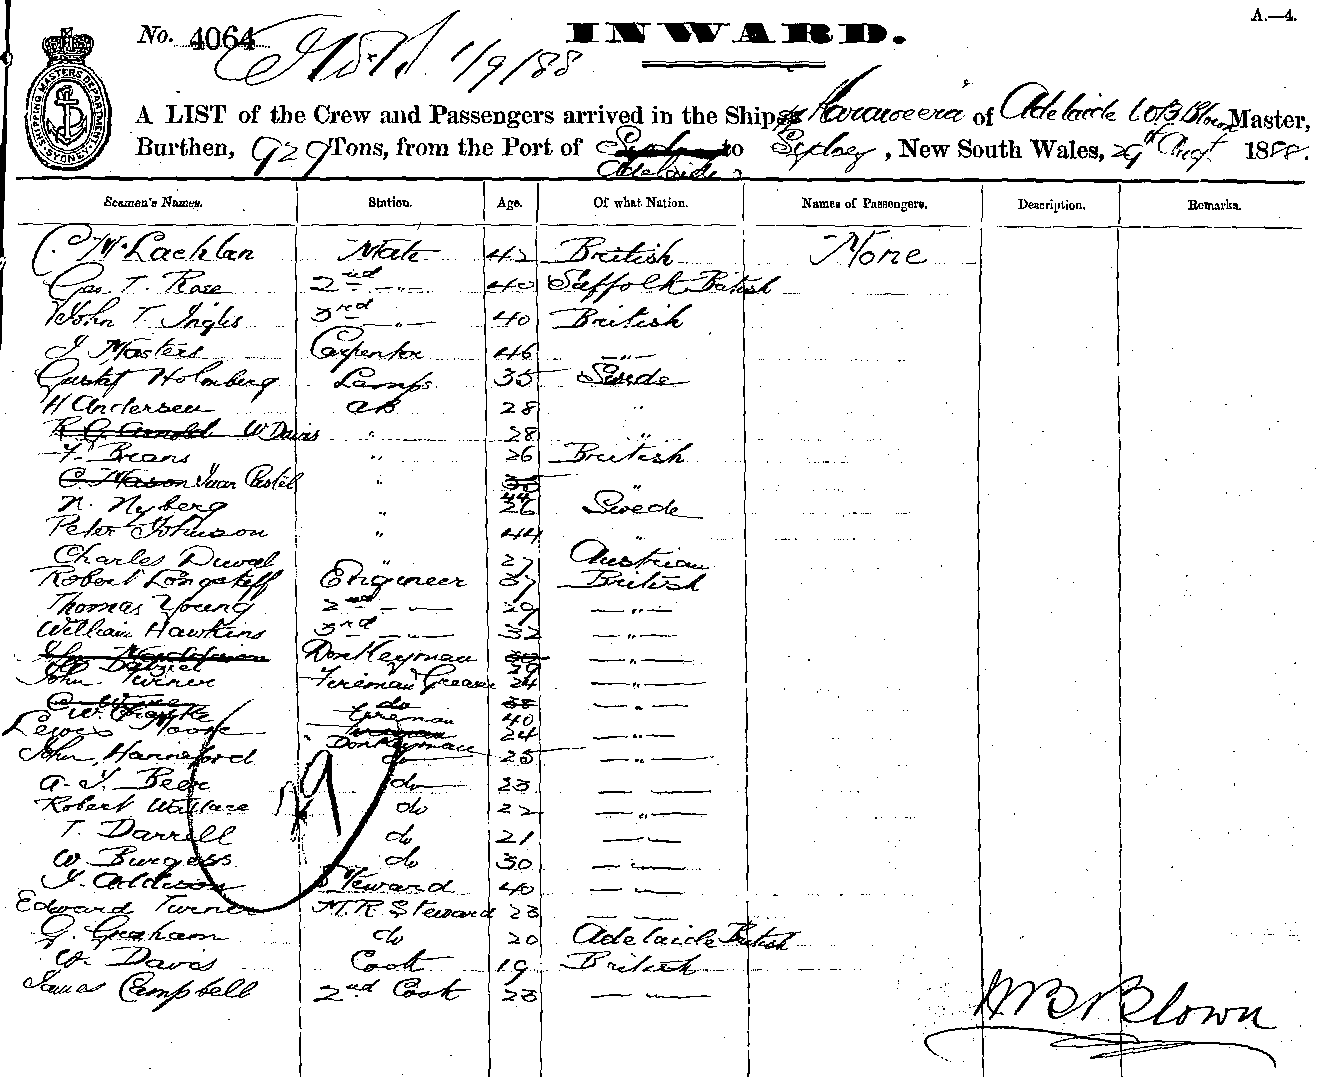 A.—4.
No. 4064
INWARD.
1/9/88
SHIPPING MASTERS DEPARTMENT SYDNEY
A LIST of the Crew and Passengers arrived in the Ship Kararweera of Adelaide W B Blown Master,
Burthen, 929 Tons, from the Port of Adelaide to Sydney, New South Wales, 29th Augt 1888.
Seamen's Names. Station. Age. Of what Nation. Names of Passengers. Description. Remarks.
C. McLachlan Mate 42 British None
Geo. T. Rose 2nd -„- 40 Suffolk British
John T. Inglis 3rd -„- 40 British
J Masters Carpenter 46 -„-
Gustaf Holmberg Lamps 35 Swede
H Andersen AB 28 „
R G Arnold W Davis „ 28 „
F. Breans „ 26 British
C. Mason Ivar Castel „ 35 44 „
N. Nyberg „ 26 Swede
Peter Johnson „ 44 „
Charles Duval 27 Austrian
Robert Longstaff Engineer 37 British
Thomas Young 2nd -„- 29 -„-
William Hawkins 3rd -„- 32 -„-
Dalziel Donkeyman 29 -„-
John Turner Fireman Greaser 24 -„-
W. Clarke do Fireman 40 -„-
Lewis Moore Donkeyman 24 -„-
John Hanneford do 25 -„-
A. J. Beer do 23 -„-
Robert Wallace do 22 -„-
T. Darrell do 21 -„-
W. Burgess do 30 -„-
J. Addison Steward 40 -„-
Edward Turner M.R Steward 23 — —
G. Graham do 20 Adelaide British
W. Davis Cook 19 British
James Campbell 2nd Cook 23 — —
29
W B Blown